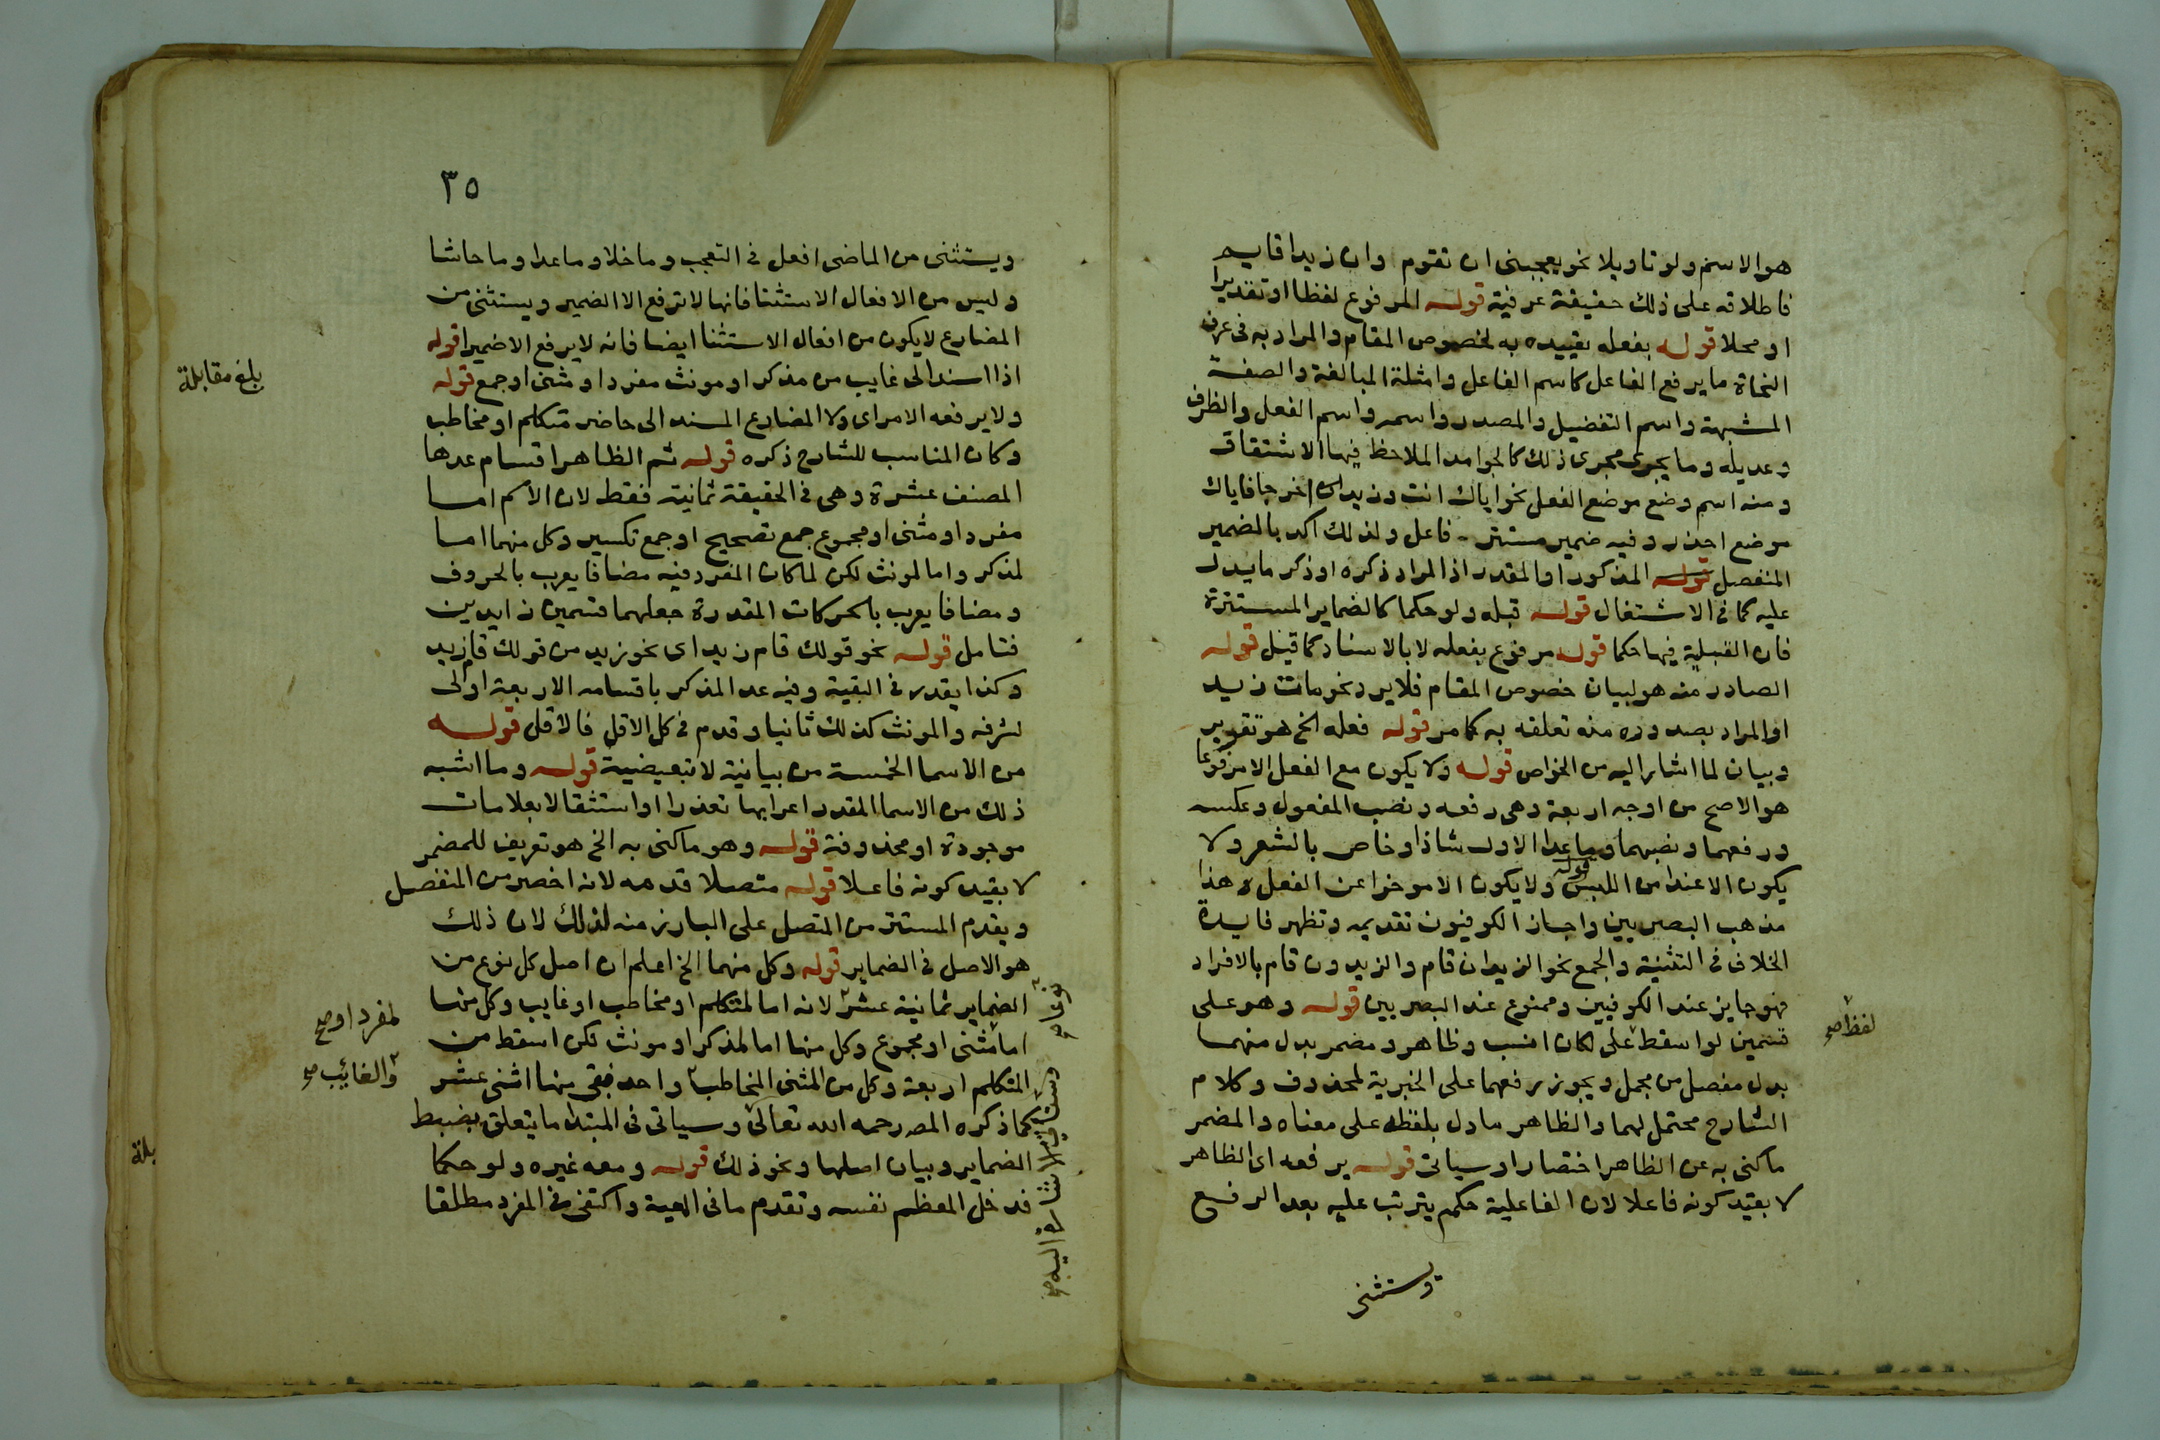 هو الاسم ولو تاويلا نحو يعجبنى ان تقوم وان زيدا قايم
فاطلاقه على ذلك حقيقة عرفية قوله المرفوع لفظا او تقديرا
او محلا قوله بفعله تقييده به لخصوص المقام والمراد به فى عرف
النحاة ما يرفع الفاعل كاسم الفاعل وامثلة المبالغة والصفة
المشبهة واسم التفضيل والمصدر واسمه واسم الفعل والظرف
وعديله وما يجرى مجرى ذلك كالجوامد الملاحظ فيها الاشتقاق
ومنه اسم وضع موضع الفعل نحو اياك انت وزيد ان اخرجا فاياك
موضع احذر وفيه ضمير مستتر فاعل ولذلك اكد بالضمير
المنفصل قوله المذكور او المقدر اذ المراد ذكره او ذكر ما يدل
عليه كما فى الاشتغال قوله قبله ولو حكما كالضماير المستترة
فان القبلية فيها حكما قوله مرفوع بفعله لا بالاسناد كما قيل قوله
الصادر منه هو لبيان خصوص المقام فلا يرد نحو مات زيد
او المراد بصدوره منه تعلقه به كما مر قوله فعله الخ هو تقرير
وبيان لما اشار اليه من الخواص قوله ولا يكون مع الفعل الا مرفوعا
هو الاصح من اوجه اربعة وهى رفعه ونصب المفعول وعكسه
ورفعهما ونصبهما وما عدا الاول شاذ او خاص بالشعر ولا
يكون الا عند امن اللبس قوله ولا يكون الا موخرا عن الفعل هذا
مذهب البصريين واجاز الكوفيون تقديمه وتظهر فايدة
الخلاف فى التثنية والجمع نحو الزيدان قام والزيدون قام بالافراد
فهو جايز عند الكوفيين وممنوع عند البصريين قوله وهو على
قسمين لو اسقط على لكان انسب وظاهر ومضمر بدل منهما
لفظ صح
بدل مفصل من مجمل ويجوز رفعهما على الخبرية لمحذوف وكلام
الشارح محتمل لهما والظاهر ما دل بلفظه على معناه والمضمر
ما كنى به عن الظاهر اختصارا وسياتى قوله يرفعه اى الظاهر
لا بقيد كونه فاعلا لان الفاعلية حكم يترتب عليه بعد الرفع
ويستثنى
٣٥
ويستثنى من الماضى افعل فى التعجب وما خلا وما عدا وما حاشا
وليس من الافعال الاستثنا فانها لا ترفع الا الضمير ويستثنى من
المضارع لا يكون من افعال الاستثنا ايضا فانه لا يرفع الا ضميرا قوله
اذا اسند الى غايب من مذكر او مونث مفرد او مثنى او جمع قوله
بلغ مقابلة
ولا يرفعه الامر اى ولا المضارع المسند الى حاضر متكلم او مخاطب
وكان المناسب للشارح ذكره قوله ثم الظاهر اقسام عدها
المصنف عشرة وهى فى الحقيقة ثمانية فقط لان الاسم اما
مفرد او مثنى او مجموع جمع تصحيح او جمع تكسير وكل منهما اما
لمذكر واما لمونث لكن لما كان المفرد فيه مضافا يعرب بالحروف
ومضافا يعرب بالحركات المقدرة جعلهما قسمين زايدين
فتامل قوله نحو قولك قام زيد اى نحو زيد من قولك قام زيد
وكذا يقدر فى البقية وفيه عد المذكر باقسامه الاربعة اولى
لشرفه والمونث كذلك ثانيا وقدم فى كل الاقل فالاقل قوله
من الاسما الخمسة من بيانية لا تبعيضية قوله وما اشبه
ذلك من الاسما المقدر اعرابها تعذرا او استثقالا بعلامات
موجودة او محذوفة قوله وهو ما كنى به الخ هو تعريف للمضمر
لا بقيد كونه فاعلا قوله متصلا قدمه لانه اخصر من المنفصل
ويقدم المستتر من المتصل على البارز منه لذلك لان ذلك
هو الاصل فى الضماير قوله وكل منهما الخ اعلم ان اصل كل نوع من
الضماير ثمانية عشر لانه اما لمتكلم او مخاطب او غايب وكل منها
اما مثنى او مجموع وكل منها اما لمذكر او مونث لكن اسقط من
لمفرد او صح
المتكلم اربعة وكل من المثنى المخاطب واحد فبقى منها اثنى عشر
والغائب صح
كما ذكره المص رحمه الله تعالى وسياتى فى المبتدا ما يتعلق بضبط
الضماير وبيان اصلها ونحو ذلك قوله ومعه غيره ولو حكما
فدخل المعظم نفسه وتقدم ما فى المعية واكتفى فى المفرد مطلقا